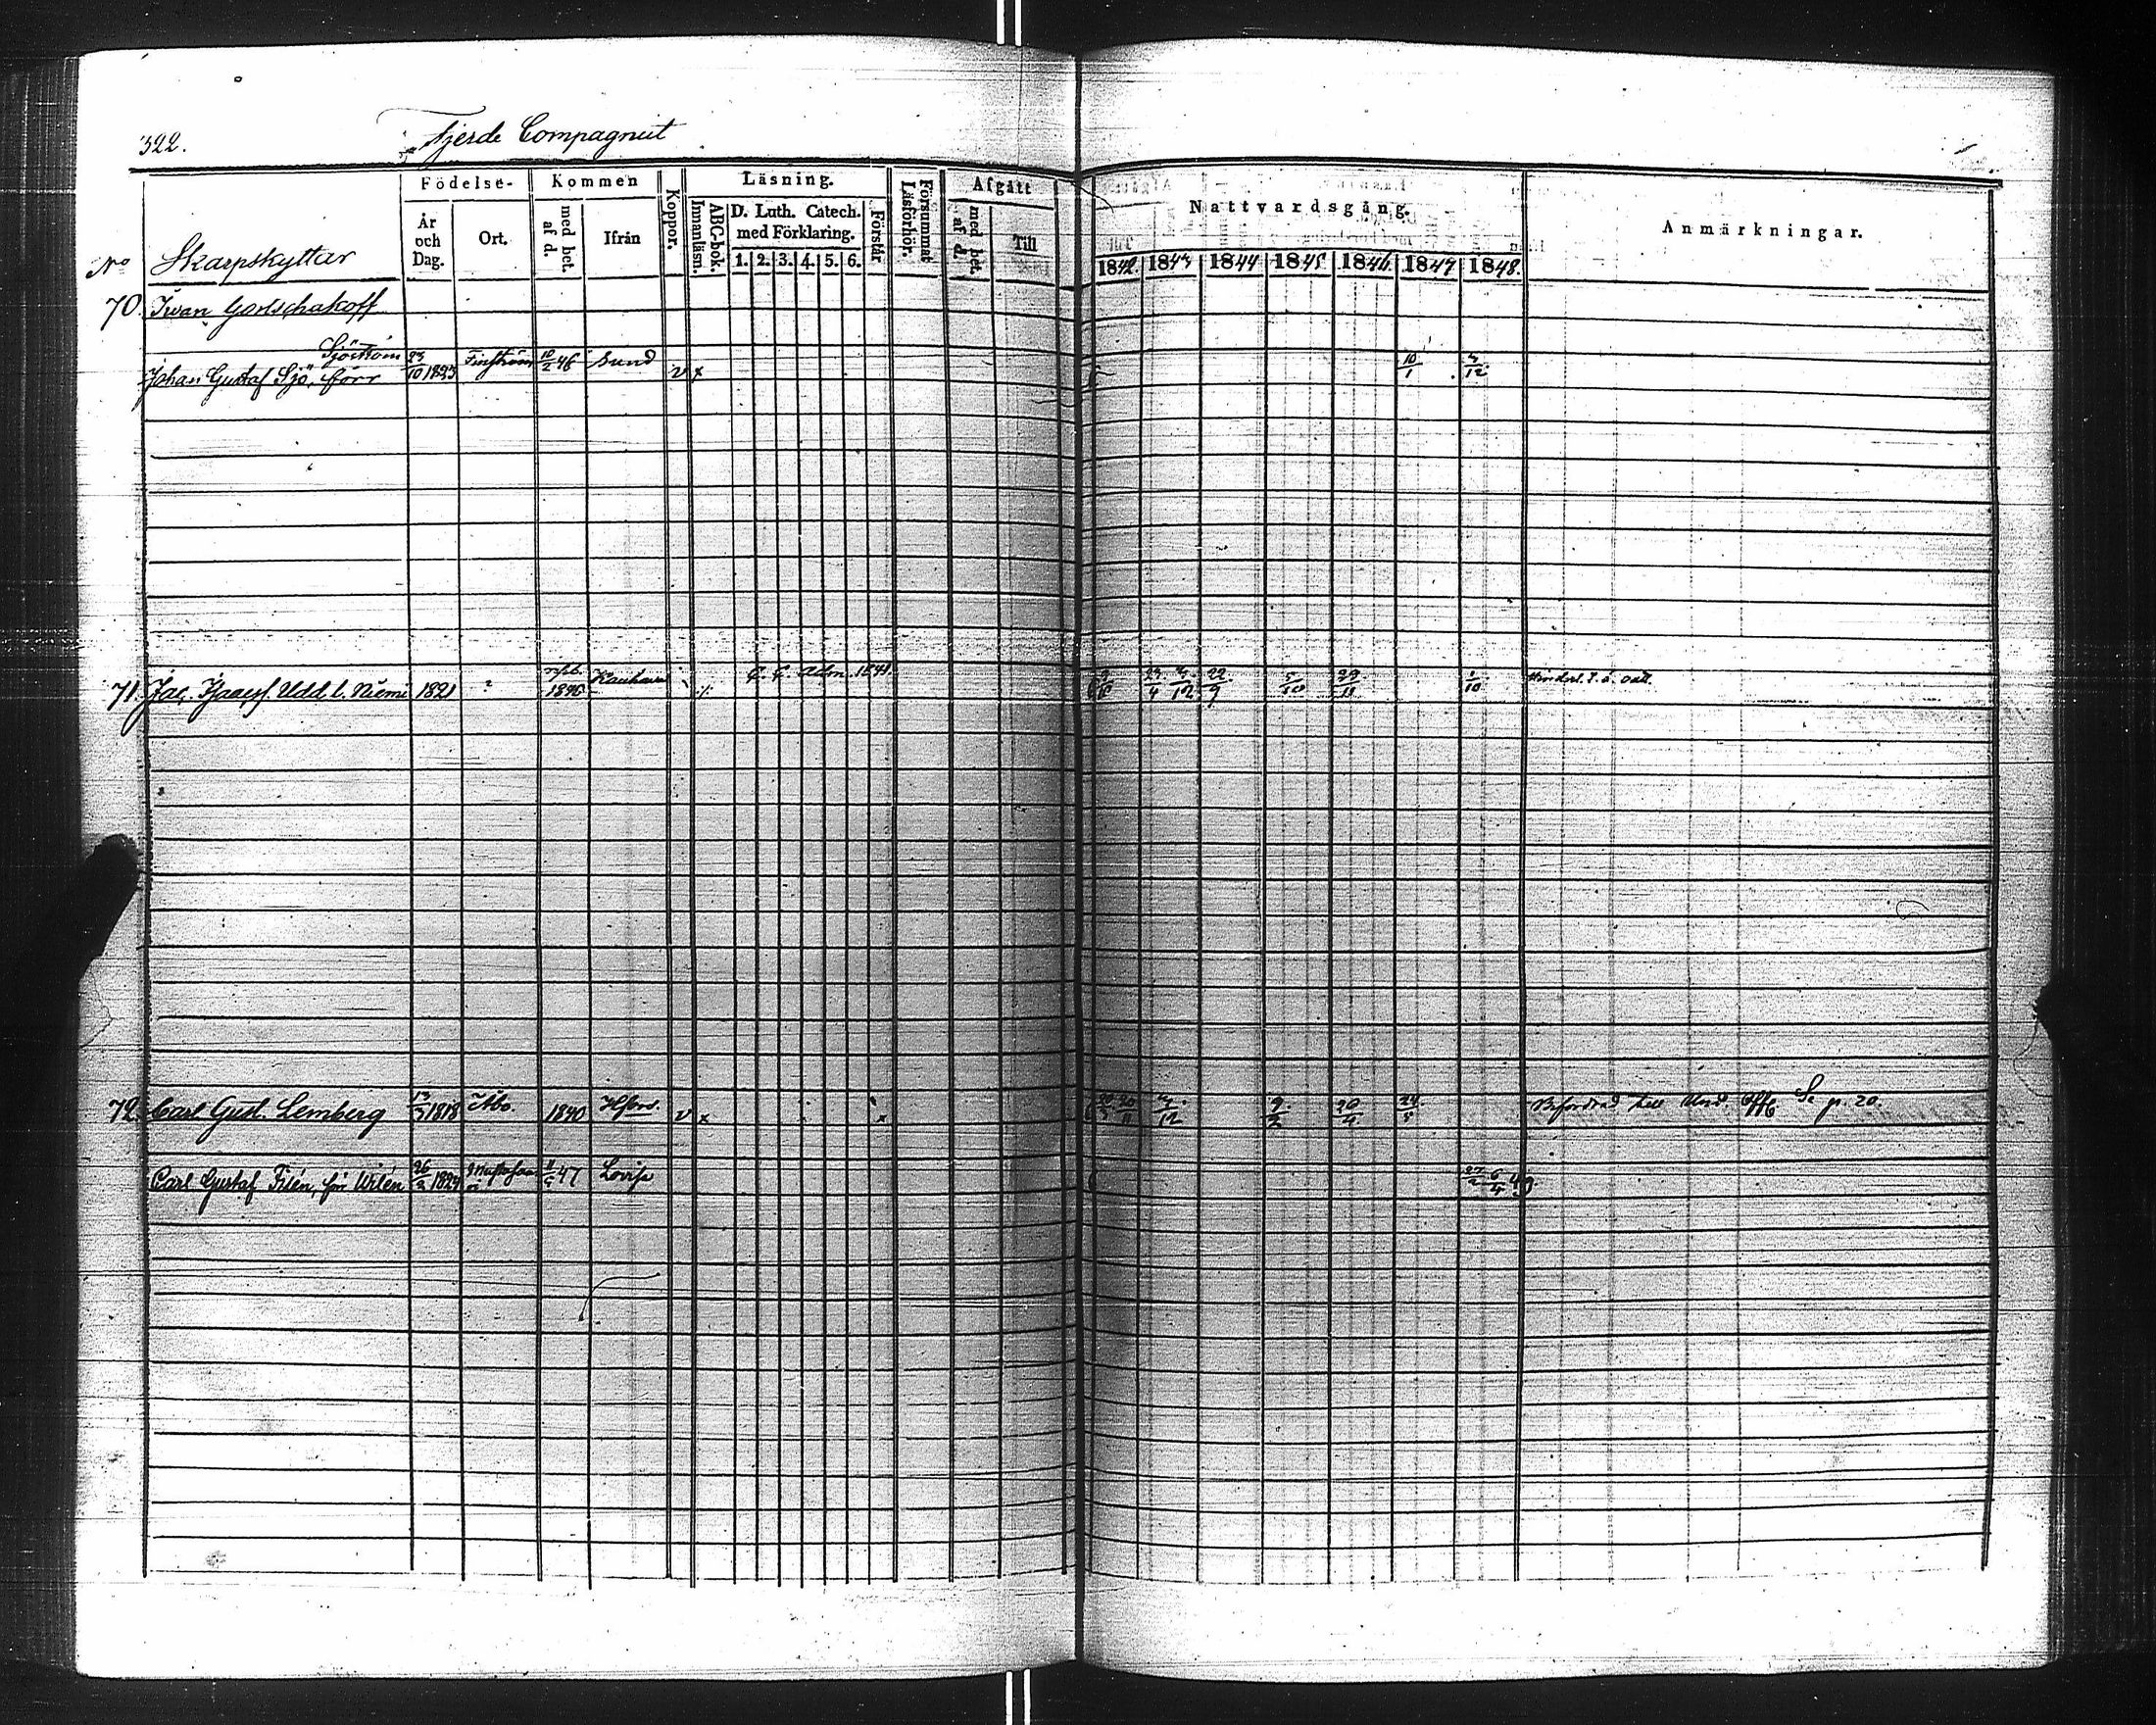 322. Fjerde Compagniet
Födelse- Kommen Koppor. Läsning. Försummat Läsförhör. Afgått Nattvardsgång. Anmärkningar.
No Skarpskyttar År och Dag. Ort. med bet. af d. Ifrån ABC-bok. Innanläsn. D. Luth. Catech. med Förklaring. Förstår med bet. af d. Till
1. 2. 3. 4. 5. 6. 1842. 1843 1844 1845 1846 1847 1848.
70. Iwan Gortschakoff
Sjöström
Johan Gustaf Sjö, förr 23/10 1823 Finström 10/2 46 Sund v x 10/1 4/12
71. Jac. Isaacss. Udd l. Niemi 1821 ? 1840 Kauhava G. G. Adm. 1841 23/4 4/12 22/9 5/10 29/11 1/10
72. Carl Gust. Lemberg 13/3 1818 Åbo. 1840 Hfors. v x x 20/11 4/12 9/2 20/4 24/5 Befordrad till Und. Offic. Se p. 20.
Carl Gustaf Tilén, förr Wilén 26/3 1824 1/5 47 Lovisa 6/4 49